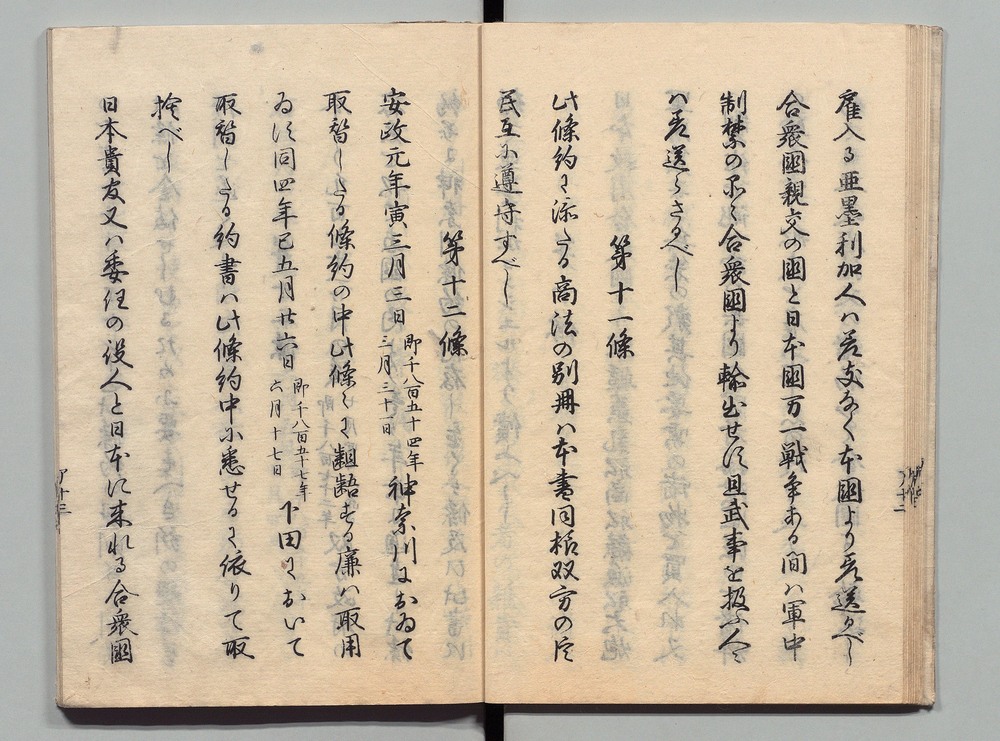 雇入る亜墨利加人ハ差支なく本國より差送るへし
合衆國親交の國と日本國万一戦争ある間ハ軍中
制禁の品々合衆國より輸出せす且武事を扱ふ人々
ハ差送らさるへし
第十一條
此條約に添たる商法の別冊ハ本書同様双方の臣
民互に遵守すへし
第十二條
安政元年寅三月三日即千八百五十四年三月三十一日神奈川におゐて
取替したる條約の中此條々に齟齬する廉ハ取用
ゐす同四年巳五月廿六日即千八百五十七年六月十七日下田において
取替したる約書ハ此條約中に悉せるに依りて取
捨へし
日本貴官又ハ委任の役人と日本に来れる合衆國